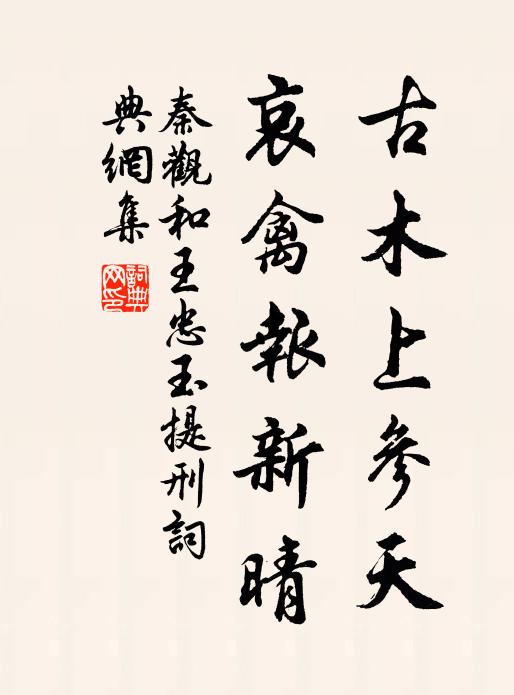 古木上參天
哀禽報新晴
秦觀和王忠玉提刑詞
典網集
詞典網印